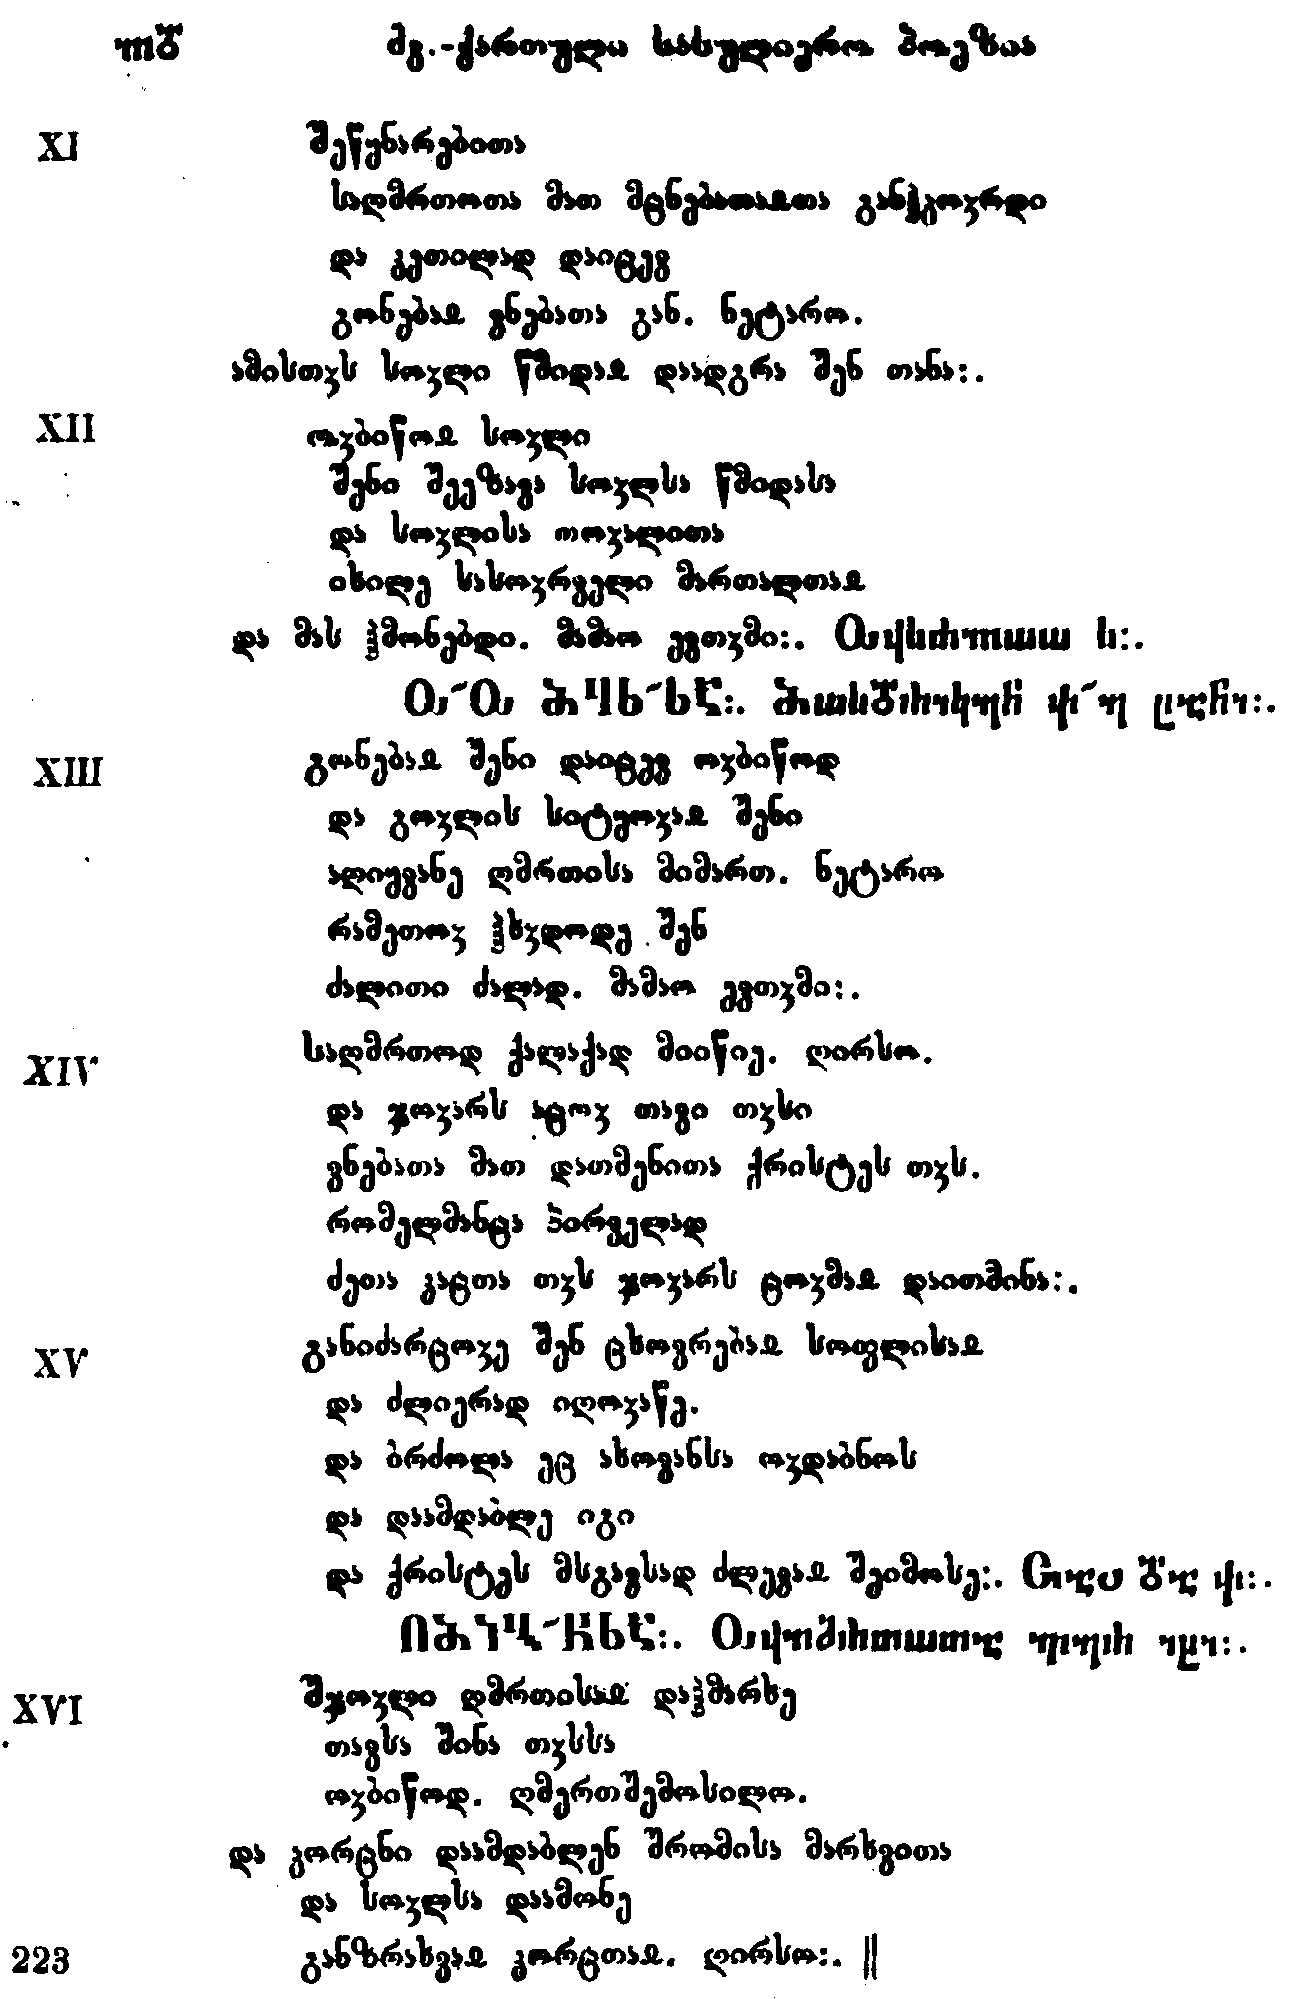 ძვ.-ქართული სასულიერო პოეზია
XI შეწყნარებითა
საღმრთოთა მათ მცნებათაჲთა განჰკოჳრდი
და კეთილად დაიცევ
გონებაჲ ვნებათა გან. ნეტარო.
ამისთჳს სოჳლი წმიდაჲ დაადგრა შენ თანა:.
XII ოჳბიწოჲ სოჳლი
შენი შეეზავა სოჳლსა წმიდასა
და სოჳლისა თოჳალითა
იხილე სასოჳრველი მართალთაჲ
და მას ჰმონებდი. მამაო ევთჳმი:.
XIII გონებაჲ შენი დაიცევ ოჳბიწოდ
და გოჳლის სიტყოჳაჲ შენი
აღიყვანე ღმრთისა მიმართ. ნეტარო
რამეთოჳ ჰხჳდოდე შენ
ძალითი ძალად. მამაო ევთჳმი:.
XIV საღმრთოდ ქალაქად მიიწიე. ღირსო.
და ჯოჳარს აცოჳ თავი თჳსი
ვნებათა მათ დათმენითა ქრისტეს თჳს.
რომელმანცა პირველად
ძეთა კაცთა თჳს ჯოჳარს ცოჳმაჲ დაითმინა:.
XV განიძარცოჳე შენ ცხოვრებაჲ სოფლისაჲ
და ძლიერად იღოჳაწე.
და ბრძოლა ეც ახოვანსა ოჳდაბნოს
და დაამდაბლე იგი
და ქრისტეს მსგავსად ძლევაჲ შეიმოსე:.
XVI შჯოჳლი ღმრთისაჲ დაჰმარხე
თავსა შინა თჳსსა
ოჳბიწოდ. ღმერთშემოსილო.
და კორცნი დაამდაბლენ შრომისა მარხვითა
და სოჳლსა დაამონე
223 განზრახვაჲ კორცთაჲ. ღირსო:. ‖